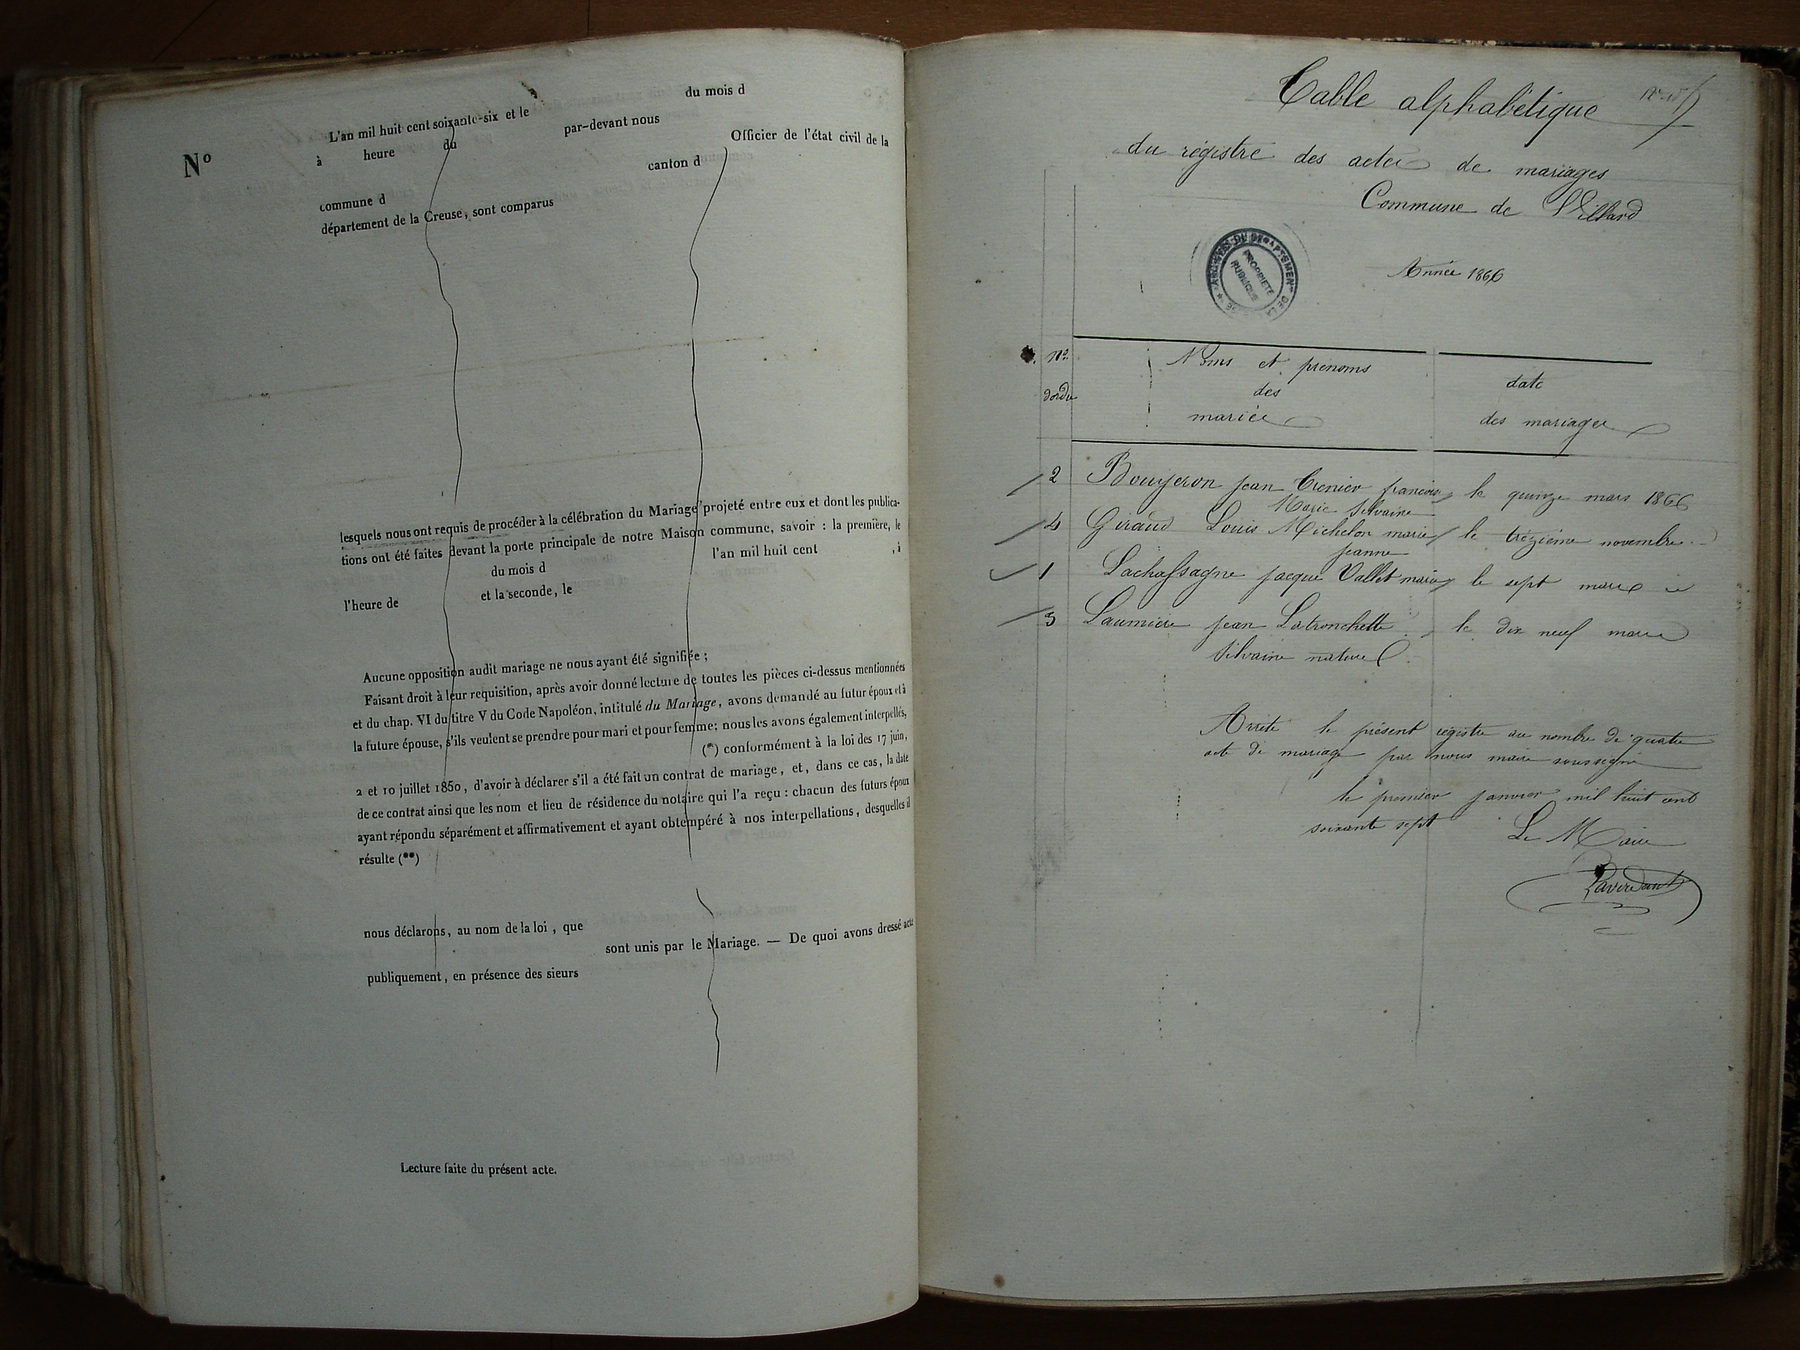 du mois d
L'an mil huit cent soixante-six et le
par-devant nous
Nº
à heure du
Officier de l'état civil de la
canton d
commune d
département de la Creuse, sont comparus
lesquels nous ont requis de procéder à la célébration du Mariage projeté entre eux et dont les publica-
tions ont été faites devant la porte principale de notre Maison commune, savoir : la première, le
du mois d l'an mil huit cent , à
l'heure de et la seconde, le
Aucune opposition audit mariage ne nous ayant été signifiée ;
Faisant droit à leur requisition, après avoir donné lecture de toutes les pièces ci-dessus mentionnées
et du chap. VI du titre V du Code Napoléon, intitulé du Mariage, avons demandé au futur époux et à
la future épouse, s'ils veulent se prendre pour mari et pour femme; nous les avons également interpellés,
(*) conformément à la loi des 17 juin,
2 et 10 juillet 1850, d'avoir à déclarer s'il a été fait un contrat de mariage, et, dans ce cas, la date
de ce contrat ainsi que les nom et lieu de résidence du notaire qui l'a reçu : chacun des futurs époux
ayant répondu séparément et affirmativement et ayant obtempéré à nos interpellations, desquelles il
résulte (**)
nous déclarons, au nom de la loi, que
sont unis par le Mariage. — De quoi avons dressé acte
publiquement, en présence des sieurs
Lecture faite du présent acte.
Table alphabétique
du régistre des actes de mariages
Commune de Villard
Année 1866
ARCHIVES DU DEPARTEMENT DE LA
PROPRIETE
PUBLIQUE
nº Noms et prénoms date
dordre des
mariés des mariages
2 Bouyeron jean Grenier le quinze mars 1866
Marie Silvaine
4 Giraud Louis Michelon marie le trézieme novembre
jeanne
1 Lachassagne jacque Vallet marie le sept mars
3 Laumiere jean Latronchette le dix neuf mars
Silvaine naturel
Arrêté le présent régistre au nombre de quatre
acte de mariage par nous maire soussigné
le premier janvier mil huit cent
soixante sept Le Maire